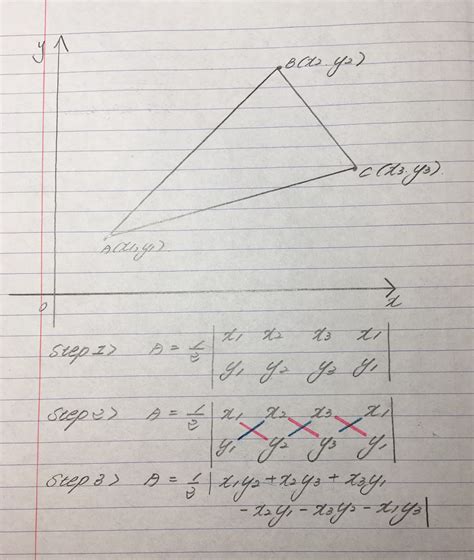 y
B(x2, y2)
C(x3, y3)
A(x1, y1)
0
x
Step 1> A = 1/2 | x1 x2 x3 x1 |
| y1 y2 y3 y1 |
Step 2> A = 1/2 | x1 x2 x3 x1 |
| y1 y2 y3 y1 |
Step 3> A = 1/2 | x1y2 + x2y3 + x3y1
- x2y1 - x3y2 - x1y3 |